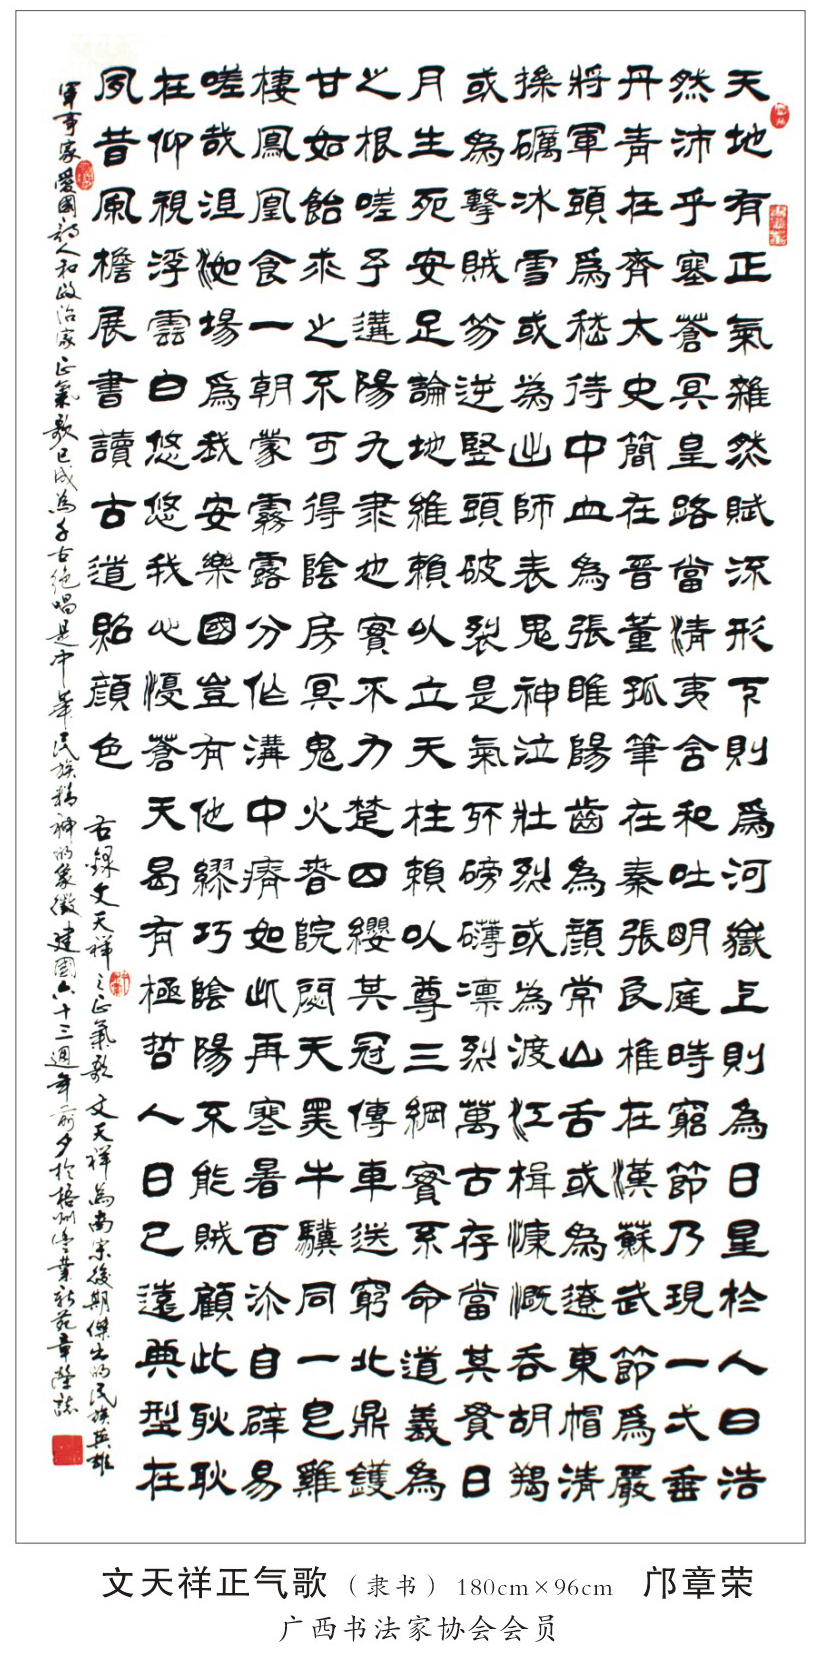 天地有正氣雜然賦流形下則為河嶽上則為日星於人曰浩
然沛乎塞蒼冥皇路當清夷含和吐明庭時窮節乃現一弌垂
丹青在齊太史簡在晉董狐筆在秦張良椎在漢蘇武節為嚴
將軍頭為嵇侍中血為張睢陽齒為顏常山舌或為遼東帽清
操礪冰雪或為出師表鬼神泣壯烈或為渡江楫慷慨吞胡羯
或為擊賊笏逆豎頭破裂是氣所磅礴凜烈萬古存當其貫日
月生死安足論地維賴以立天柱賴以尊三綱實系命道義為
之根嗟予遘陽九隶也實不力楚囚纓其冠傳車送窮北鼎鑊
甘如飴求之不可得陰房冥鬼火春院閟天黑牛驥同一皂雞
棲鳳凰食一朝蒙霧露分作溝中瘠如此再寒暑百沴自辟易
嗟哉沮洳場為我安樂國豈有他繆巧陰陽不能賊顧此耿耿
在仰視浮雲白悠悠我心憂蒼天曷有極哲人日已遠典型在
夙昔風檐展書讀古道照顏色
右錄文天祥之正氣歌 文天祥為南宋後期傑出的民族英雄
軍事家愛國詩人和政治家正氣歌已成為千古絕唱是中華民族精神的象徵建國六十三週年前夕於梧州 業新苑章榮誌
文天祥正气歌(隶书)180cm×96cm 邝章荣
广西书法家协会会员